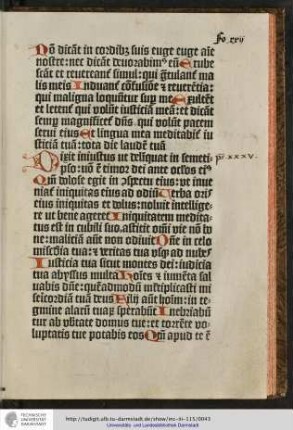 fo. xxij
Nō dicāt in cordibꝫ suis euge euge aīe
nostre: nec dicāt deuorabimꝰ eū Erube
scāt et reuereant̄ simul: qui ḡtulant̄ ma
lis meis Induant̄ cōfusiōe ⁊ reuerētia:
qui maligna loquūtur sup̄ me Exultēt
et letent̄ qui volūt iusticiā meā: et dicāt
semꝑ magnificet̄ dn̄s. qui volūt pacem
serui eius Et lingua mea meditabit̄ iu
sticiā tuā: tota die laudem tuā
Dixit iniustus ut delinquat in semeti-
pr̄ xxxv.
pso: nō ē timor dei ante oclos eiꝰ
Qm̄ dolose egit in ɔspectu eius: ut inue
niat̄ iniquitas eius ad odiū Verba oris
eius iniquitas et dolus: noluit intellige-
re ut bene ageret Iniquitatem medita-
tus est in cubili suo. astitit om̄i vie nō bo
ne: maliciā aūt non odiuit Dn̄e in celo
misc̄dia tua: ⁊ veritas tua vsqꝫ ad nubes
Iusticia tua sicut montes dei: iudicia
tua abyssus multa Hoīes ⁊ iumēta sal
uabis dn̄e: quēadmodū ml̄tiplicasti mi
sericordiā tuā deus Filij aūt hoīm: in te-
gmine alarū tuaꝝ sperabūt Inebriabūt̄
tur ab vbertate domus tue: et torrēte vo-
luptatis tue potabis eos Qm̄ apud te ē
TECHNISCHE
UNIVERSITÄT
DARMSTADT
http://tudigit.ulb.tu-darmstadt.de/show/inc-iii-115/0043
Universitäts- und Landesbibliothek Darmstadt